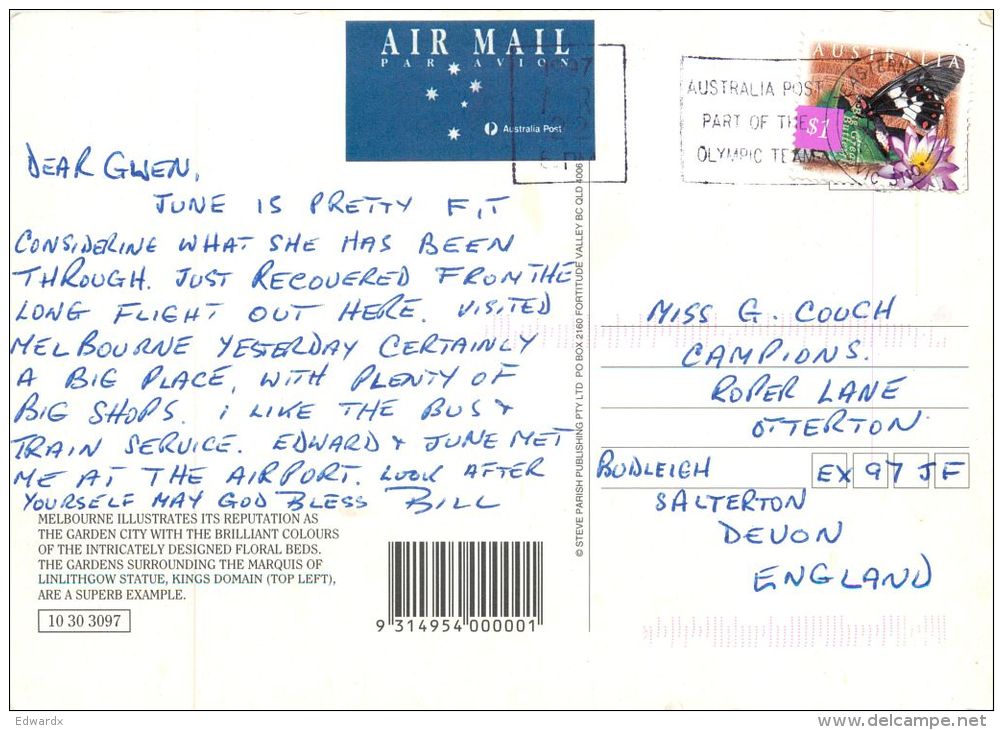 AIR MAIL
PAR AVION
Australia Post
1997
6-PM
AUSTRALIA POST
PART OF THE
OLYMPIC TEAM
AUSTRALIA
$1
DEAR GWEN,
JUNE IS PRETTY FIT
CONSIDERING WHAT SHE HAS BEEN
THROUGH. JUST RECOVERED FROM THE
LONG FLIGHT OUT HERE. VISITED
MELBOURNE YESTERDAY CERTAINLY
A BIG PLACE, WITH PLENTY OF
BIG SHOPS. I LIKE THE BUS &
TRAIN SERVICE. EDWARD & JUNE MET
ME AT THE AIRPORT. LOOK AFTER
YOURSELF MAY GOD BLESS BILL
MELBOURNE ILLUSTRATES ITS REPUTATION AS
THE GARDEN CITY WITH THE BRILLIANT COLOURS
OF THE INTRICATELY DESIGNED FLORAL BEDS.
THE GARDENS SURROUNDING THE MARQUIS OF
LINLITHGOW STATUE, KINGS DOMAIN (TOP LEFT),
ARE A SUPERB EXAMPLE.
10 30 3097
9 314954 000001
© STEVE PARISH PUBLISHING PTY LTD PO BOX 2160 FORTITUDE VALLEY BC QLD 4006
MISS G. COUCH
CAMPIONS.
ROPER LANE
OTTERTON
BUDLEIGH EX 97 JF
SALTERTON
DEVON
ENGLAND
Edwardx
www.delcampe.net